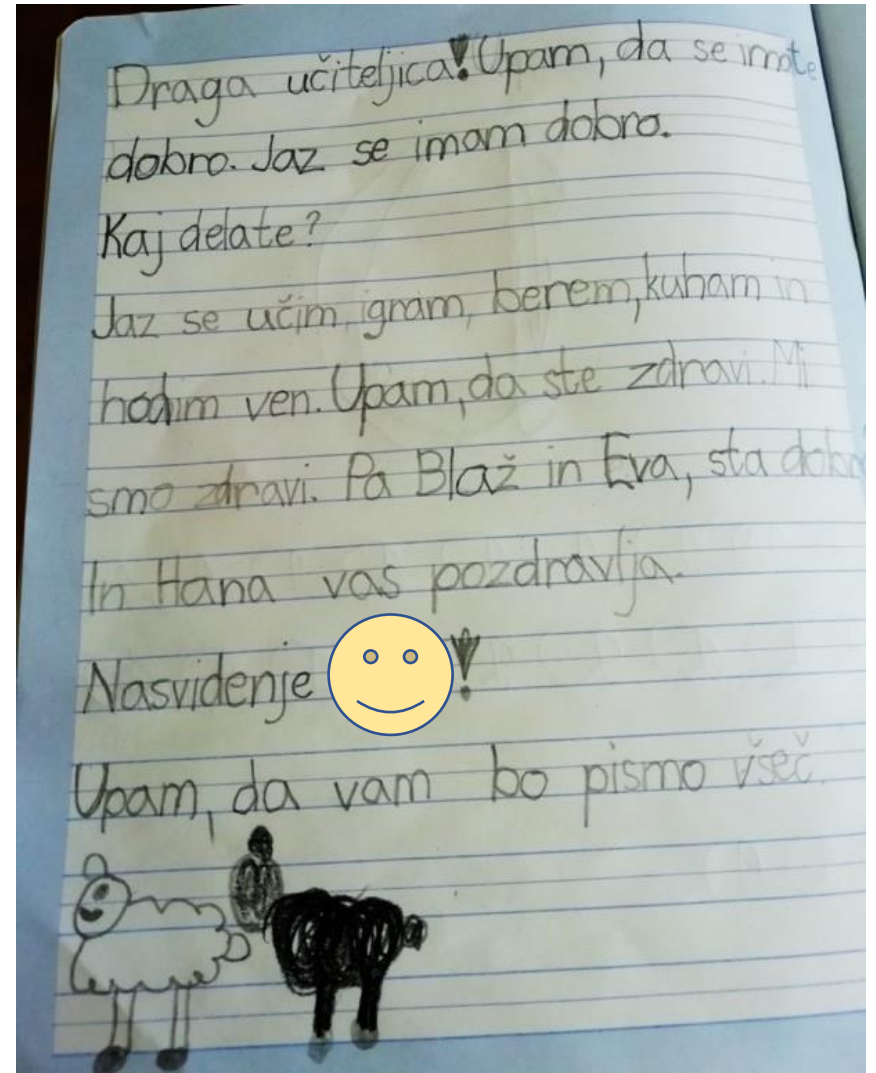 Draga učiteljica! Upam, da se imate
dobro. Jaz se imam dobro.
Kaj delate?
Jaz se učim, igram, berem, kuham in
hodim ven. Upam, da ste zdravi. Mi
smo zdravi. Pa Blaž in Eva, sta dobro
In Hana vas pozdravlja.
Nasvidenje !
Upam, da vam bo pismo všeč.